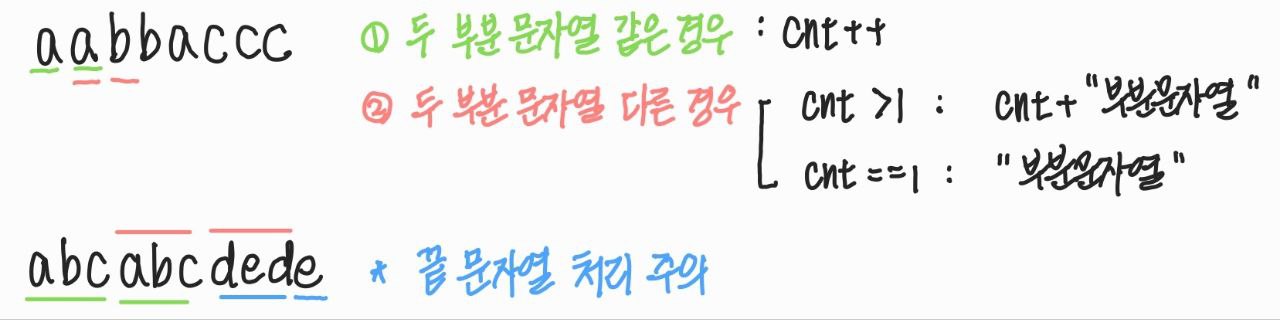 aabbaccc ① 두 부분 문자열 같은 경우 : cnt++
② 두 부분 문자열 다른 경우 cnt >1 : cnt + "부분문자열"
cnt ==1 : "부분문자열"
abcabcdede * 끝 문자열 처리 주의